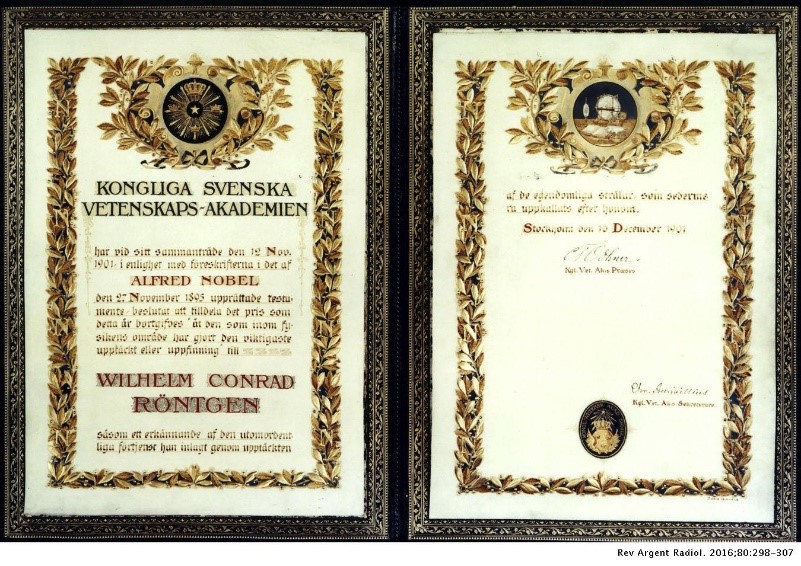 KONGLIGA SVENSKA
VETENSKAPS-AKADEMIEN
har vid sitt sammanträde den 12 Nov.
1901 i enlighet med föreskrifterna i det af
ALFRED NOBEL
den 27 November 1895 upprättade testa-
mente beslutat att tilldela det pris som
detta år bortgifves "åt den som inom fy-
sikens område har gjort den viktigaste
upptäckt eller uppfinning" till
WILHELM CONRAD
RÖNTGEN
såsom ett erkännande af den utomordent-
liga förtjenst han inlagt genom upptäckten
af de egendomliga strålar, som sederme-
ra uppkallats efter honom.
Stockholm den 10 December 1901
Kgl. Vet. Akis Præses
Kgl. Vet. Akis Sekreterare.
Rev Argent Radiol. 2016;80:298-307